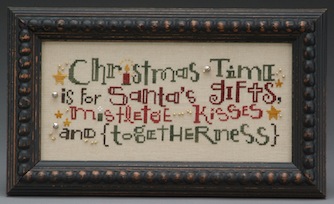 Christmas Time
is for Santa's gifts,
mistletoe kisses
and {togetherness}